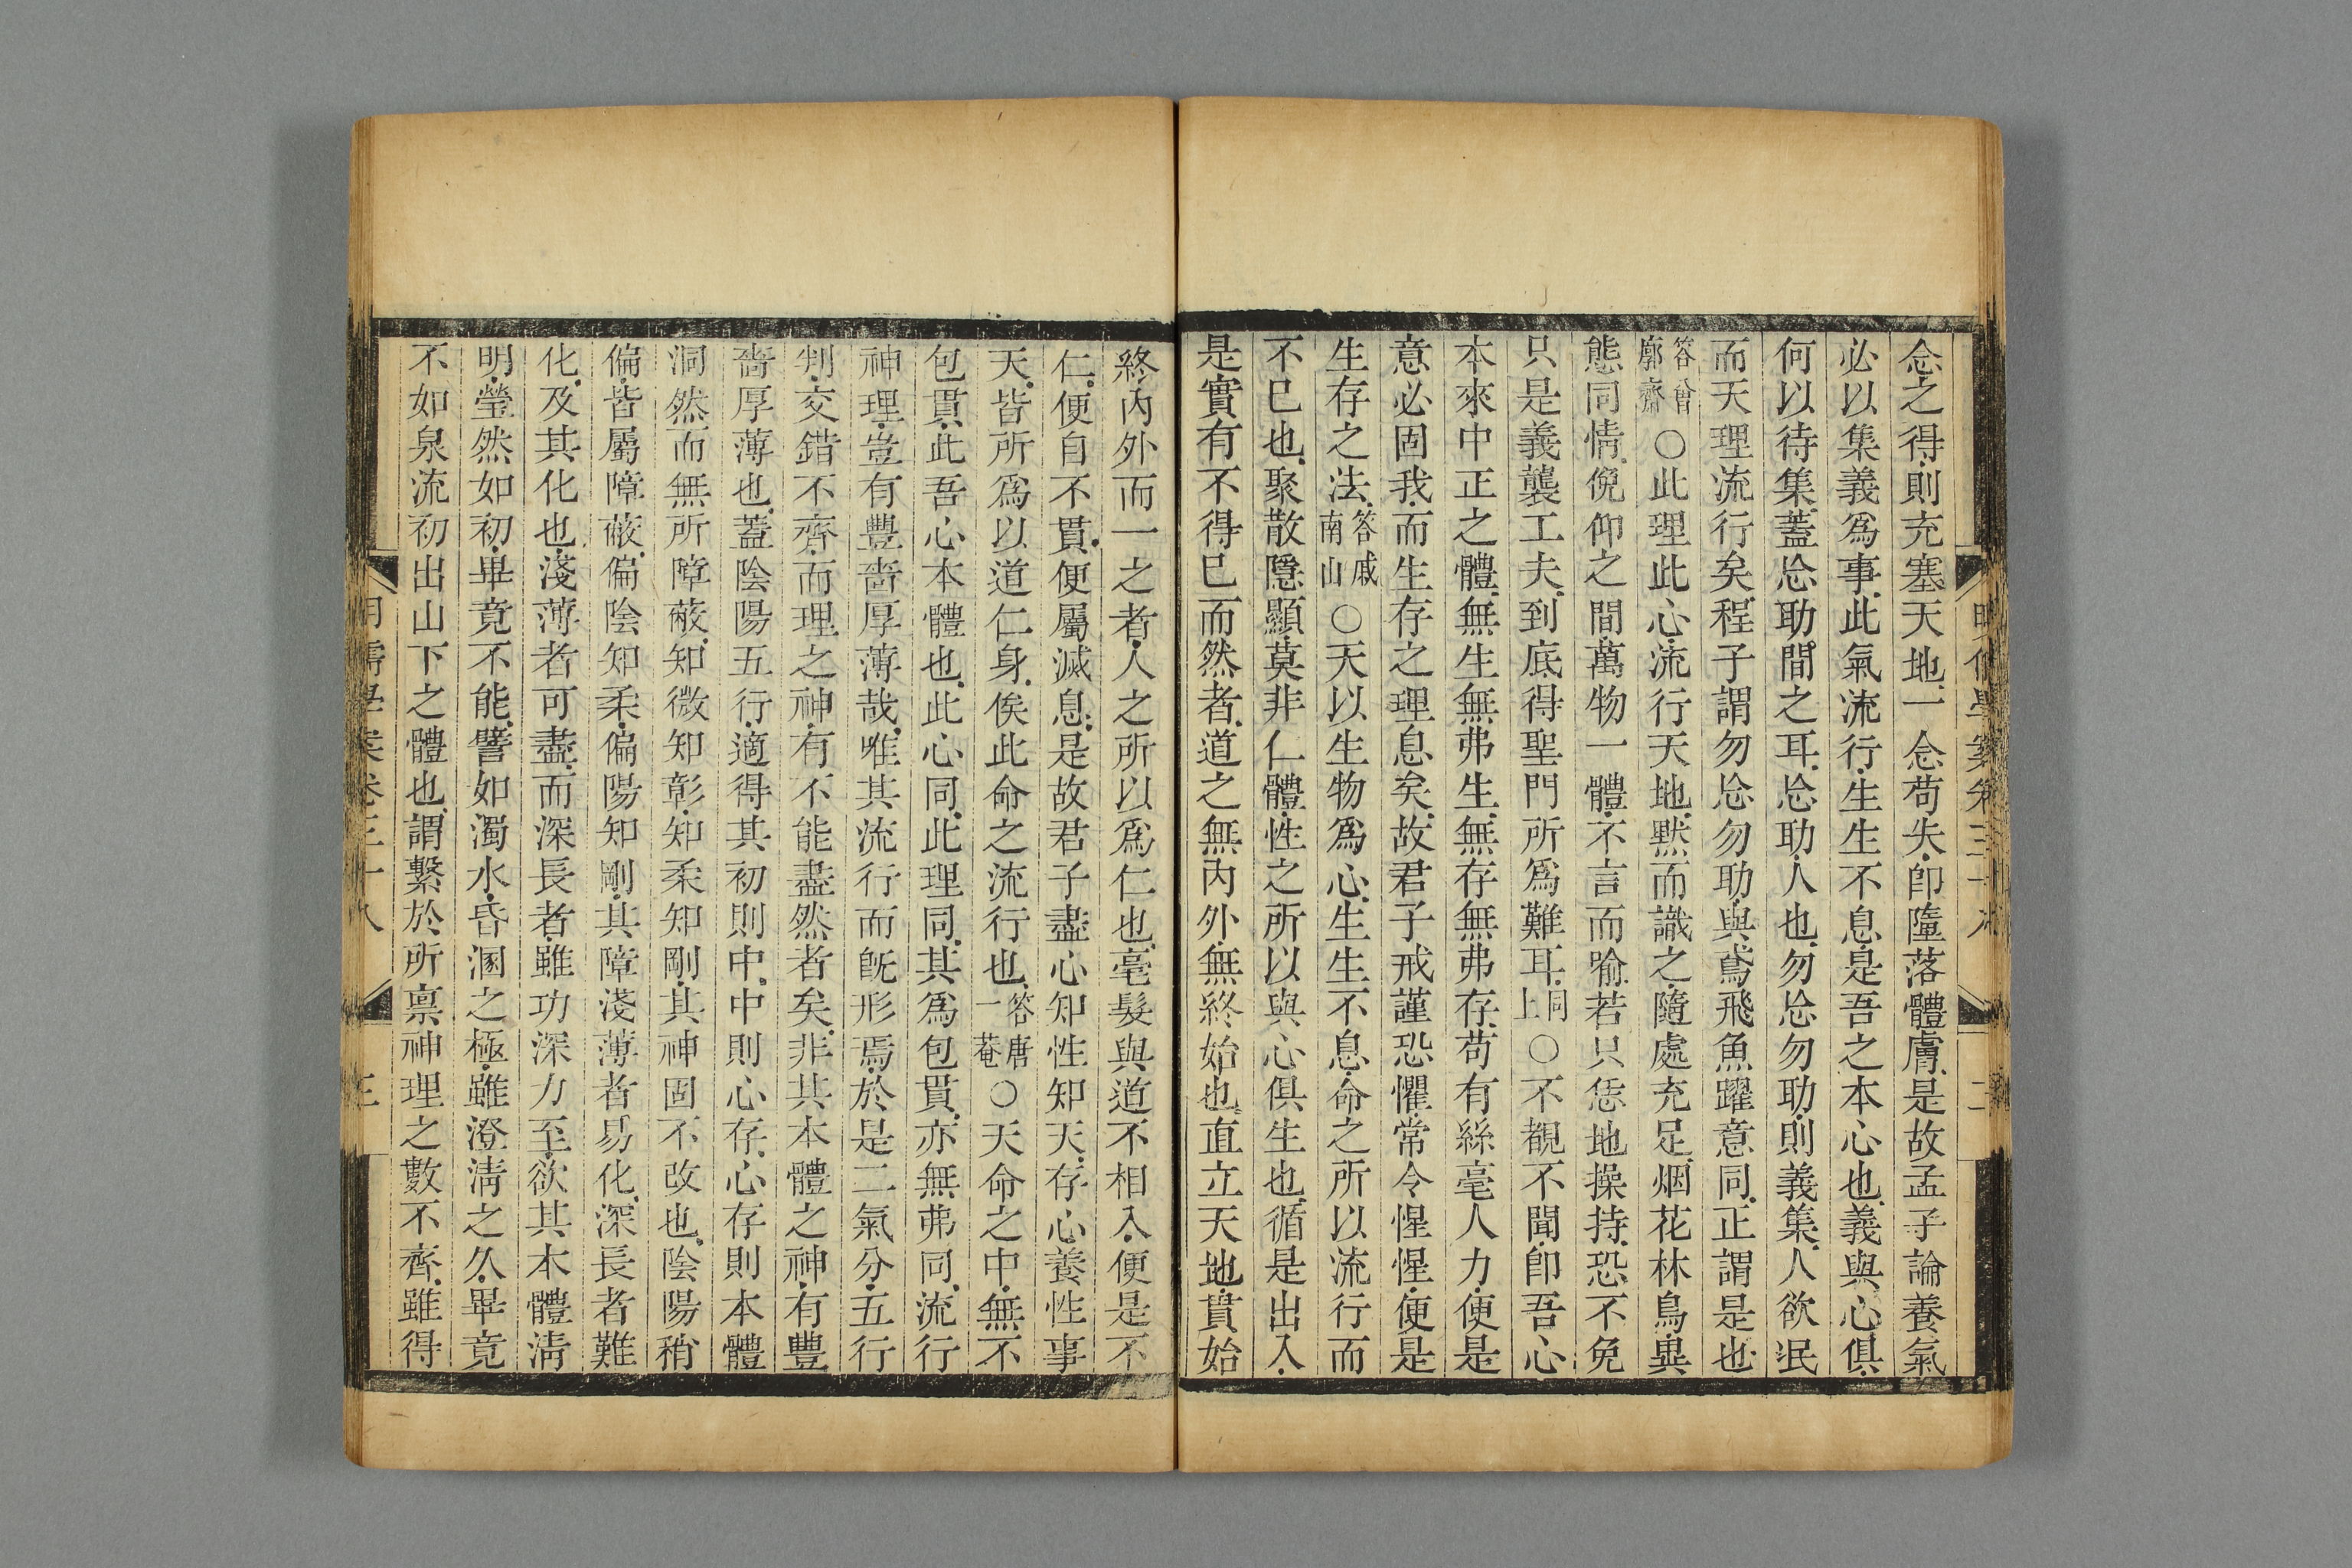 念之得則充塞天地一念苟失卽墮落體膚是故孟子論養氣
必以集義爲事此氣流行生生不息是吾之本心也義與心俱
何以待集蓋忩助間之耳忩助人也勿忩勿助則義集人欲泯
而天理流行矣程子謂勿忩勿助與鳶飛魚躍意同正謂是也
答曾廓齋○此理此心流行天地默而識之隨處充足烟花林鳥異
態同情俛仰之間萬物一體不言而喻若只恁地操持恐不免
只是義襲工夫到底得聖門所爲難耳同上○不覩不聞卽吾心
本來中正之體無生無弗生無存無弗存苟有絲毫人力便是
意必固我而生存之理息矣故君子戒謹恐懼常令惺惺便是
生存之法答戚南山○天以生物爲心生生不息命之所以流行而
不已也聚散隱顯莫非仁體性之所以與心俱生也循是出入
是實有不得已而然者道之無內外無終始也直立天地貫始
終內外而一之者人之所以爲仁也毫髮與道不相入便是不
仁便自不貫便屬滅息是故君子盡心知性知天存心養性事
天皆所爲以道仁身俟此命之流行也答唐一菴○天命之中無不
包貫此吾心本體也此心同此理同其爲包貫亦無弗同流行
神理豈有豐嗇厚薄哉唯其流行而旣形焉於是二氣分五行
判交錯不齊而理之神有不能盡然者矣非其本體之神有豐
嗇厚薄也蓋陰陽五行適得其初則中中則心存心存則本體
洞然而無所障蔽知微知彰知柔知剛其神固不改也陰陽稍
偏皆屬障蔽偏陰知柔偏陽知剛其障淺薄者易化深長者難
化及其化也淺薄者可盡而深長者雖功深力至欲其本體淸
明瑩然如初畢竟不能譬如濁水昏溷之極雖澄淸之久畢竟
不如泉流初出山下之體也謂繫於所禀神理之數不齊雖得
明儒學案卷三十八
三